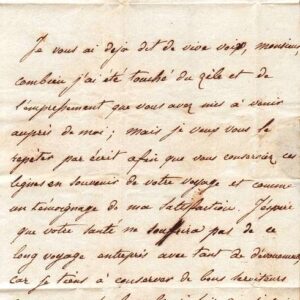 Je vous ai deja dit de vive voix, monsieur,
combien j'ai été touché du zèle et de
l'empressement que vous avez mis à venir
auprès de moi; mais je veux vous le
répéter par écrit afin que vous conserviez ces
lignes en souvenir de votre voyage et comme
un témoignage de ma satisfaction. J'espère
que votre santé ne souffrira pas de ce
long voyage entrepris avec tant de dévouement
car je tiens à conserver de bons serviteurs